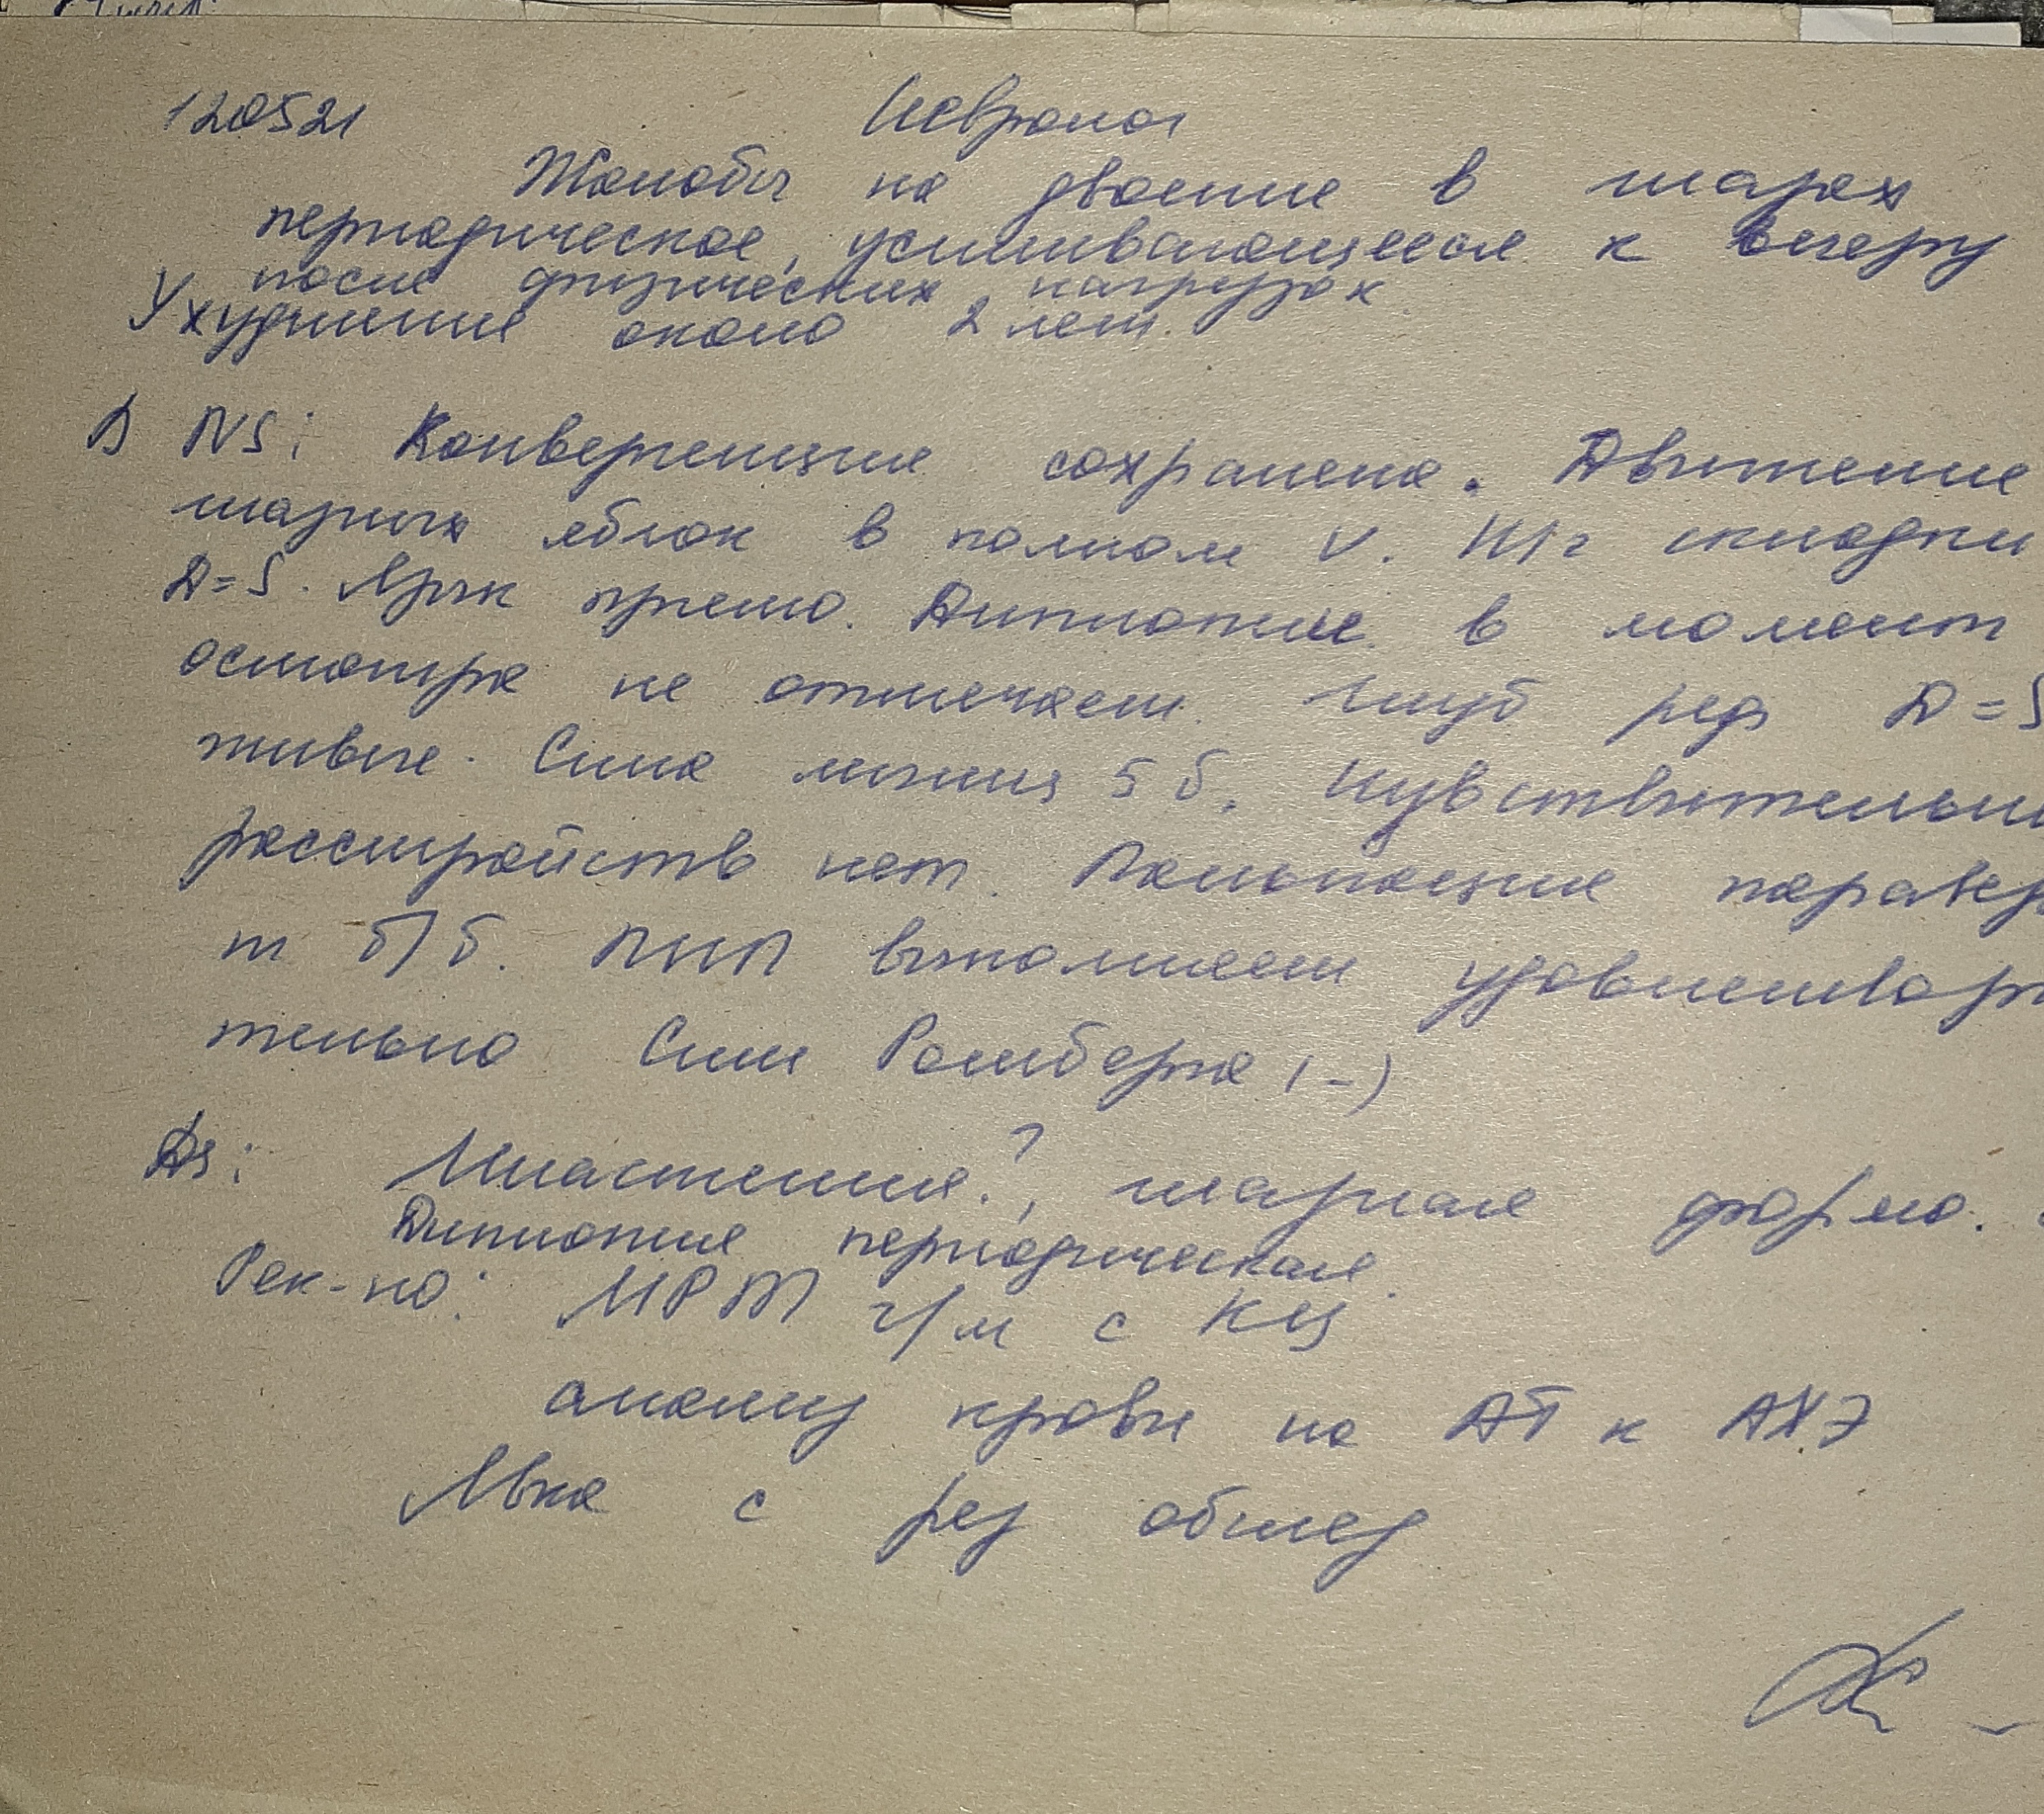 120521 Невролог
Жалобы на двоение в глазах
периодическое, усиливающееся к вечеру
после физических нагрузок.
Ухудшение около 2 лет.
В NS: Конвергенция сохранена. Движение
глазных яблок в полном V. Н/г складки
D=S. Язык прямо. Диплопии в момент
осмотра не отмечает. Глуб реф D=S
живые. Сила мышц 5 б. Чувствительн
расстройств нет. Пальпация паравер
т б/б. ПНП выполняет удовлетвори
тельно Сим Ромберга (-)
Ds: Миастения?, глазная форма.
Диплопия периодическая.
Рек-но: МРТ г/м с КУ
анализ крови на АТ к АХЭ
Явка с рез обслед